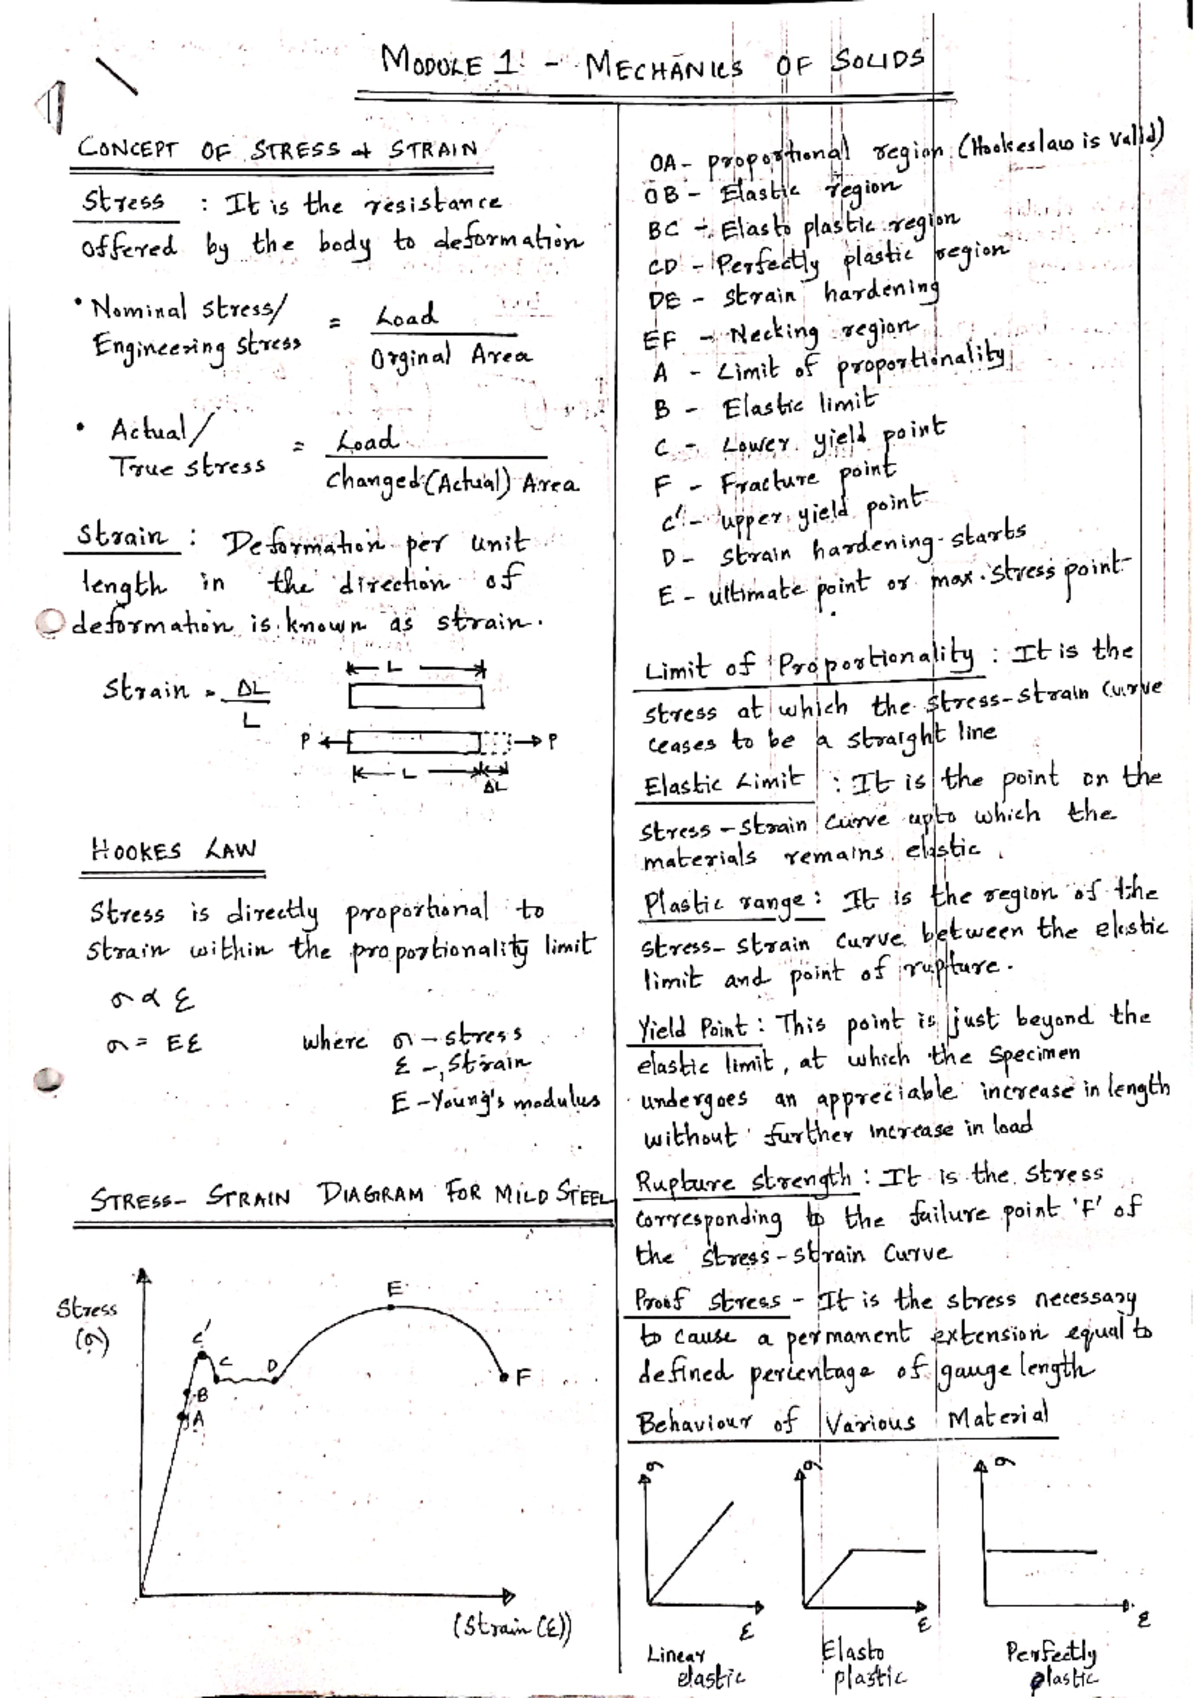 MODULE 1 - MECHANICS OF SOLIDS
CONCEPT OF STRESS & STRAIN
Stress : It is the resistance
offered by the body to deformation
• Nominal Stress/
Engineering Stress = Load
Orginal Area
• Actual/
True stress = Load
Changed (Actual) Area
Strain : Deformation per unit
length in the direction of
deformation is known as strain.
L
Strain = ΔL
L
P P
L ΔL
HOOKES LAW
Stress is directly proportional to
Strain within the proportionality limit
σ α ε
σ = Eε where σ - stress
ε - Strain
E - Young's modulus
STRESS - STRAIN DIAGRAM FOR MILD STEEL
Stress
(σ)
E
C'
C
D
B
A
F
(Strain (ε))
OA - proportional region (Hookeslaw is valid)
OB - Elastic region
BC - Elasto plastic region
CD - Perfectly plastic region
DE - Strain hardening
EF - Necking region
A - Limit of proportionality
B - Elastic limit
C - Lower yield point
F - Fracture point
C' - upper yield point
D - Strain hardening starts
E - ultimate point or max. stress point
Limit of Proportionality : It is the
stress at which the stress-strain curve
ceases to be a straight line
Elastic Limit : It is the point on the
stress - strain curve upto which the
materials remains elastic
Plastic range : It is the region of the
stress - strain curve between the elastic
limit and point of rupture.
Yield Point : This point is just beyond the
elastic limit, at which the specimen
undergoes an appreciable increase in length
without further increase in load
Rupture strength : It is the stress
corresponding to the failure point 'F' of
the stress - strain curve
Proof stress - It is the stress necessary
to cause a permanent extension equal to
defined percentage of gauge length
Behaviour of Various Material
σ σ σ
ε ε ε
Linear
elastic
Elasto
plastic
Perfectly
plastic